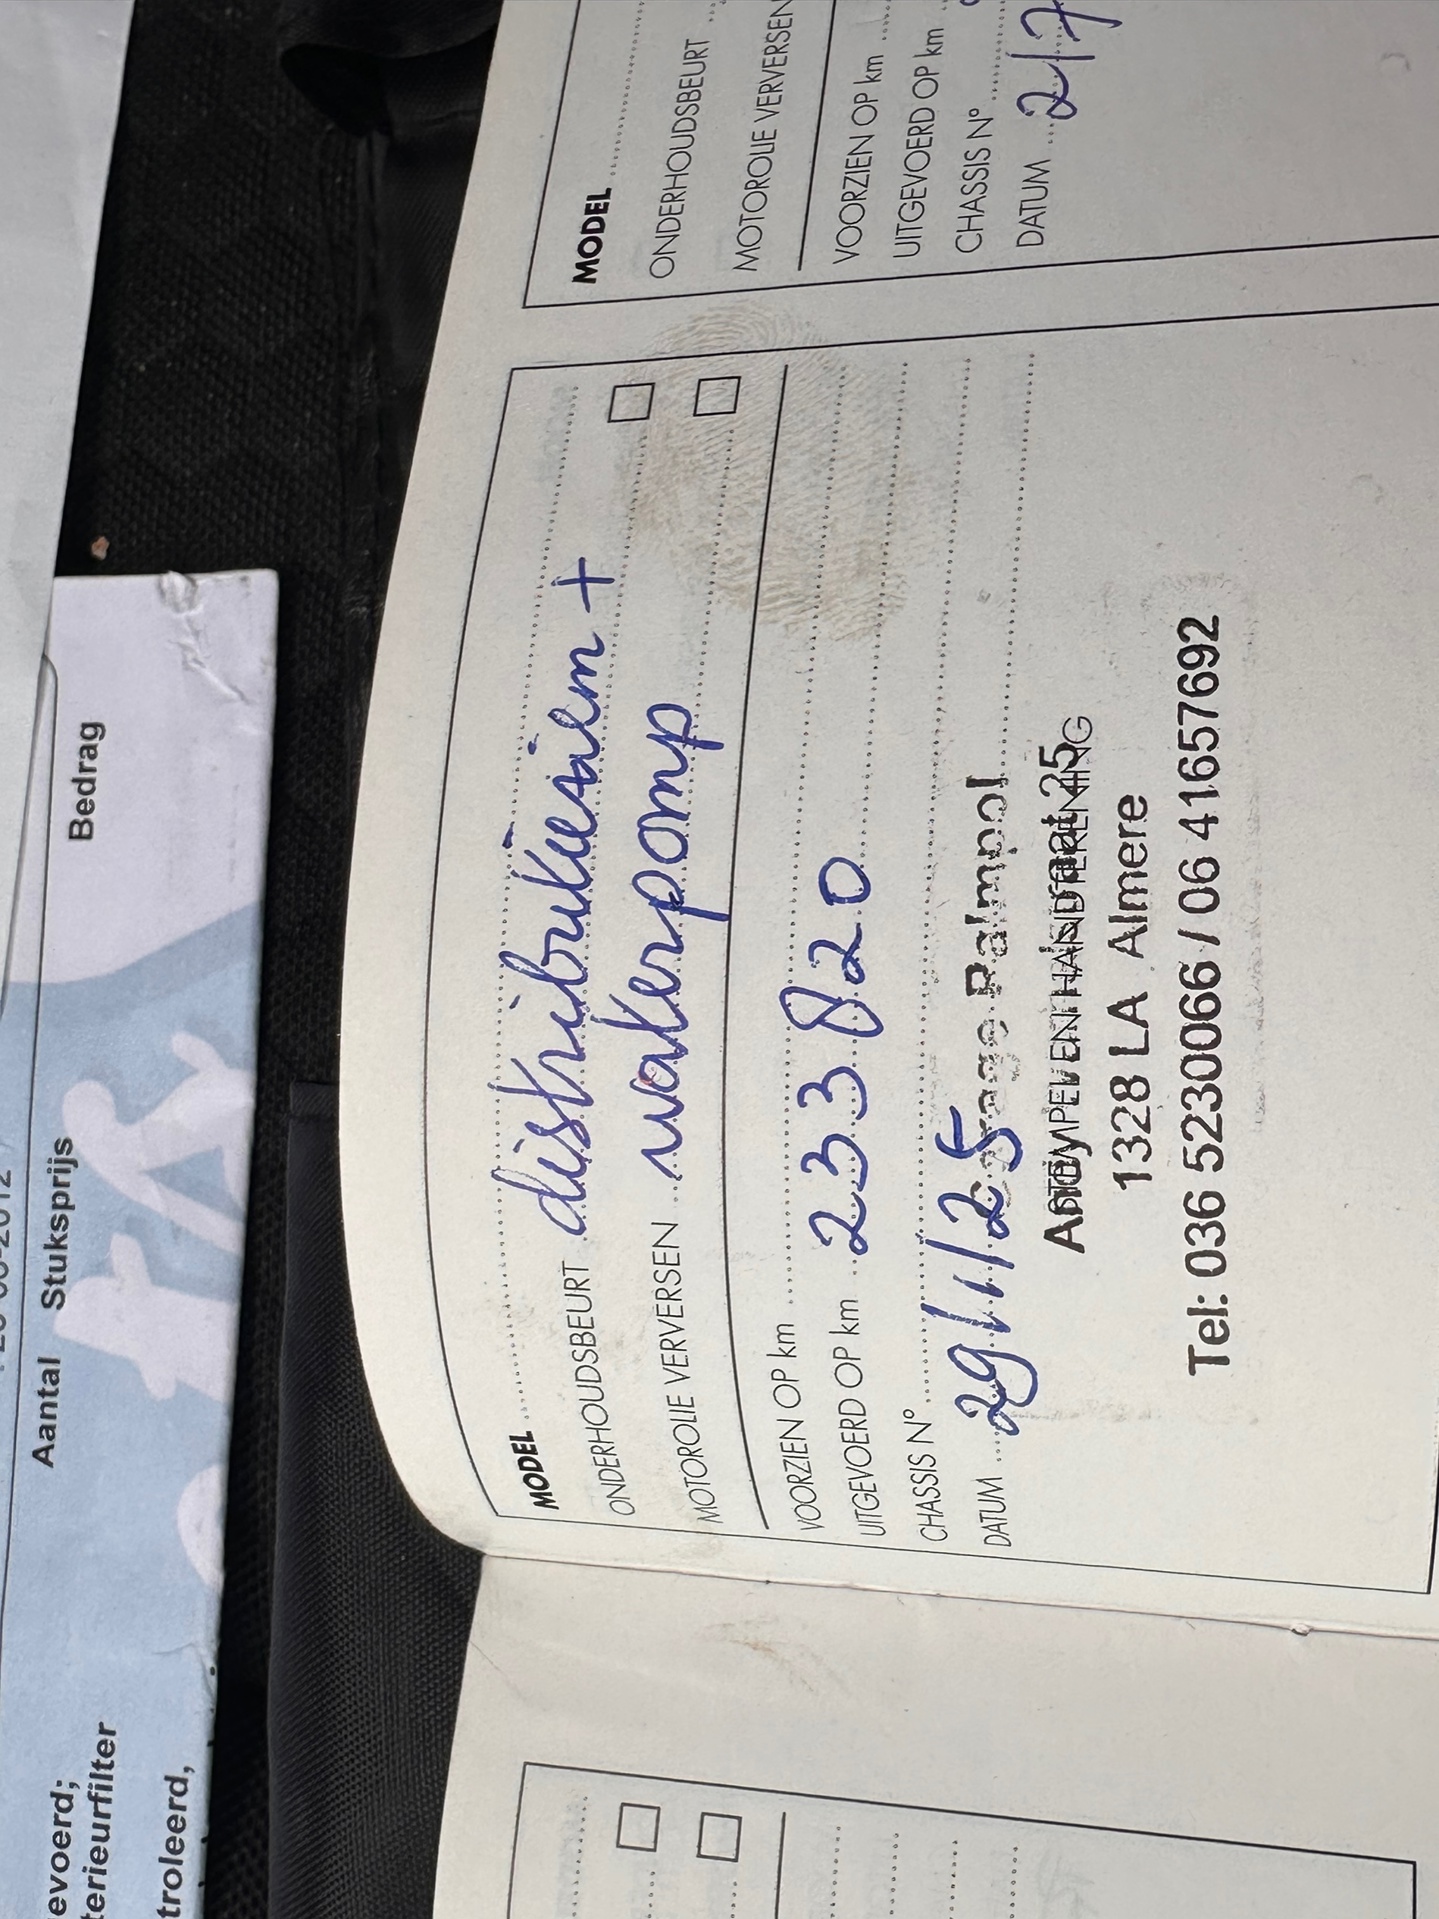 MODEL
ONDERHOUDSBEURT distributieriem +
MOTOROLIE VERVERSEN waterpomp
VOORZIEN OP km
UITGEVOERD OP km 233 820
CHASSIS N°
DATUM 29/1/25
Garage Palmpol
STEMPEL EN HANDTEKENING
25
1328 LA Almere
Tel: 036 5230066 / 06 41657692
MODEL
ONDERHOUDSBEURT
MOTOROLIE VERVERSEN
VOORZIEN OP km
UITGEVOERD OP km
CHASSIS N°
DATUM 2/7
Aantal Stuksprijs Bedrag
evoerd;
terieurfilter
troleerd,